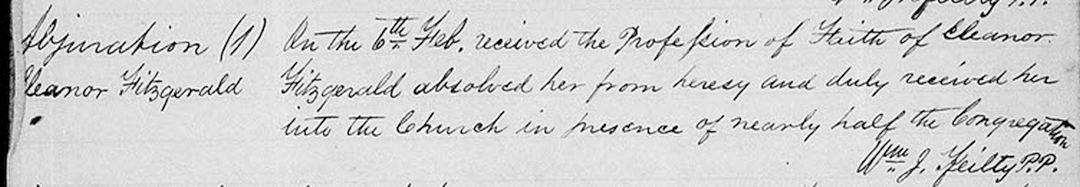 Abjuration (1) On the 6th Feb. received the Profession of Faith of Eleanor
Eleanor Fitzgerald Fitzgerald absolved her from heresy and duly received her
into the Church in presence of nearly half the Congregation
Wm J. Feilty P.P.